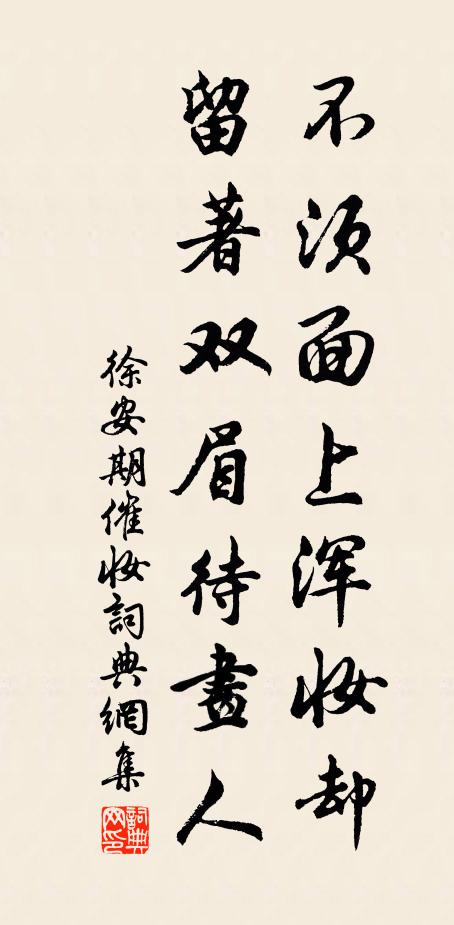 不须面上浑妆却
留著双眉待畫人
徐安期催妆詞典網集
詞典网印